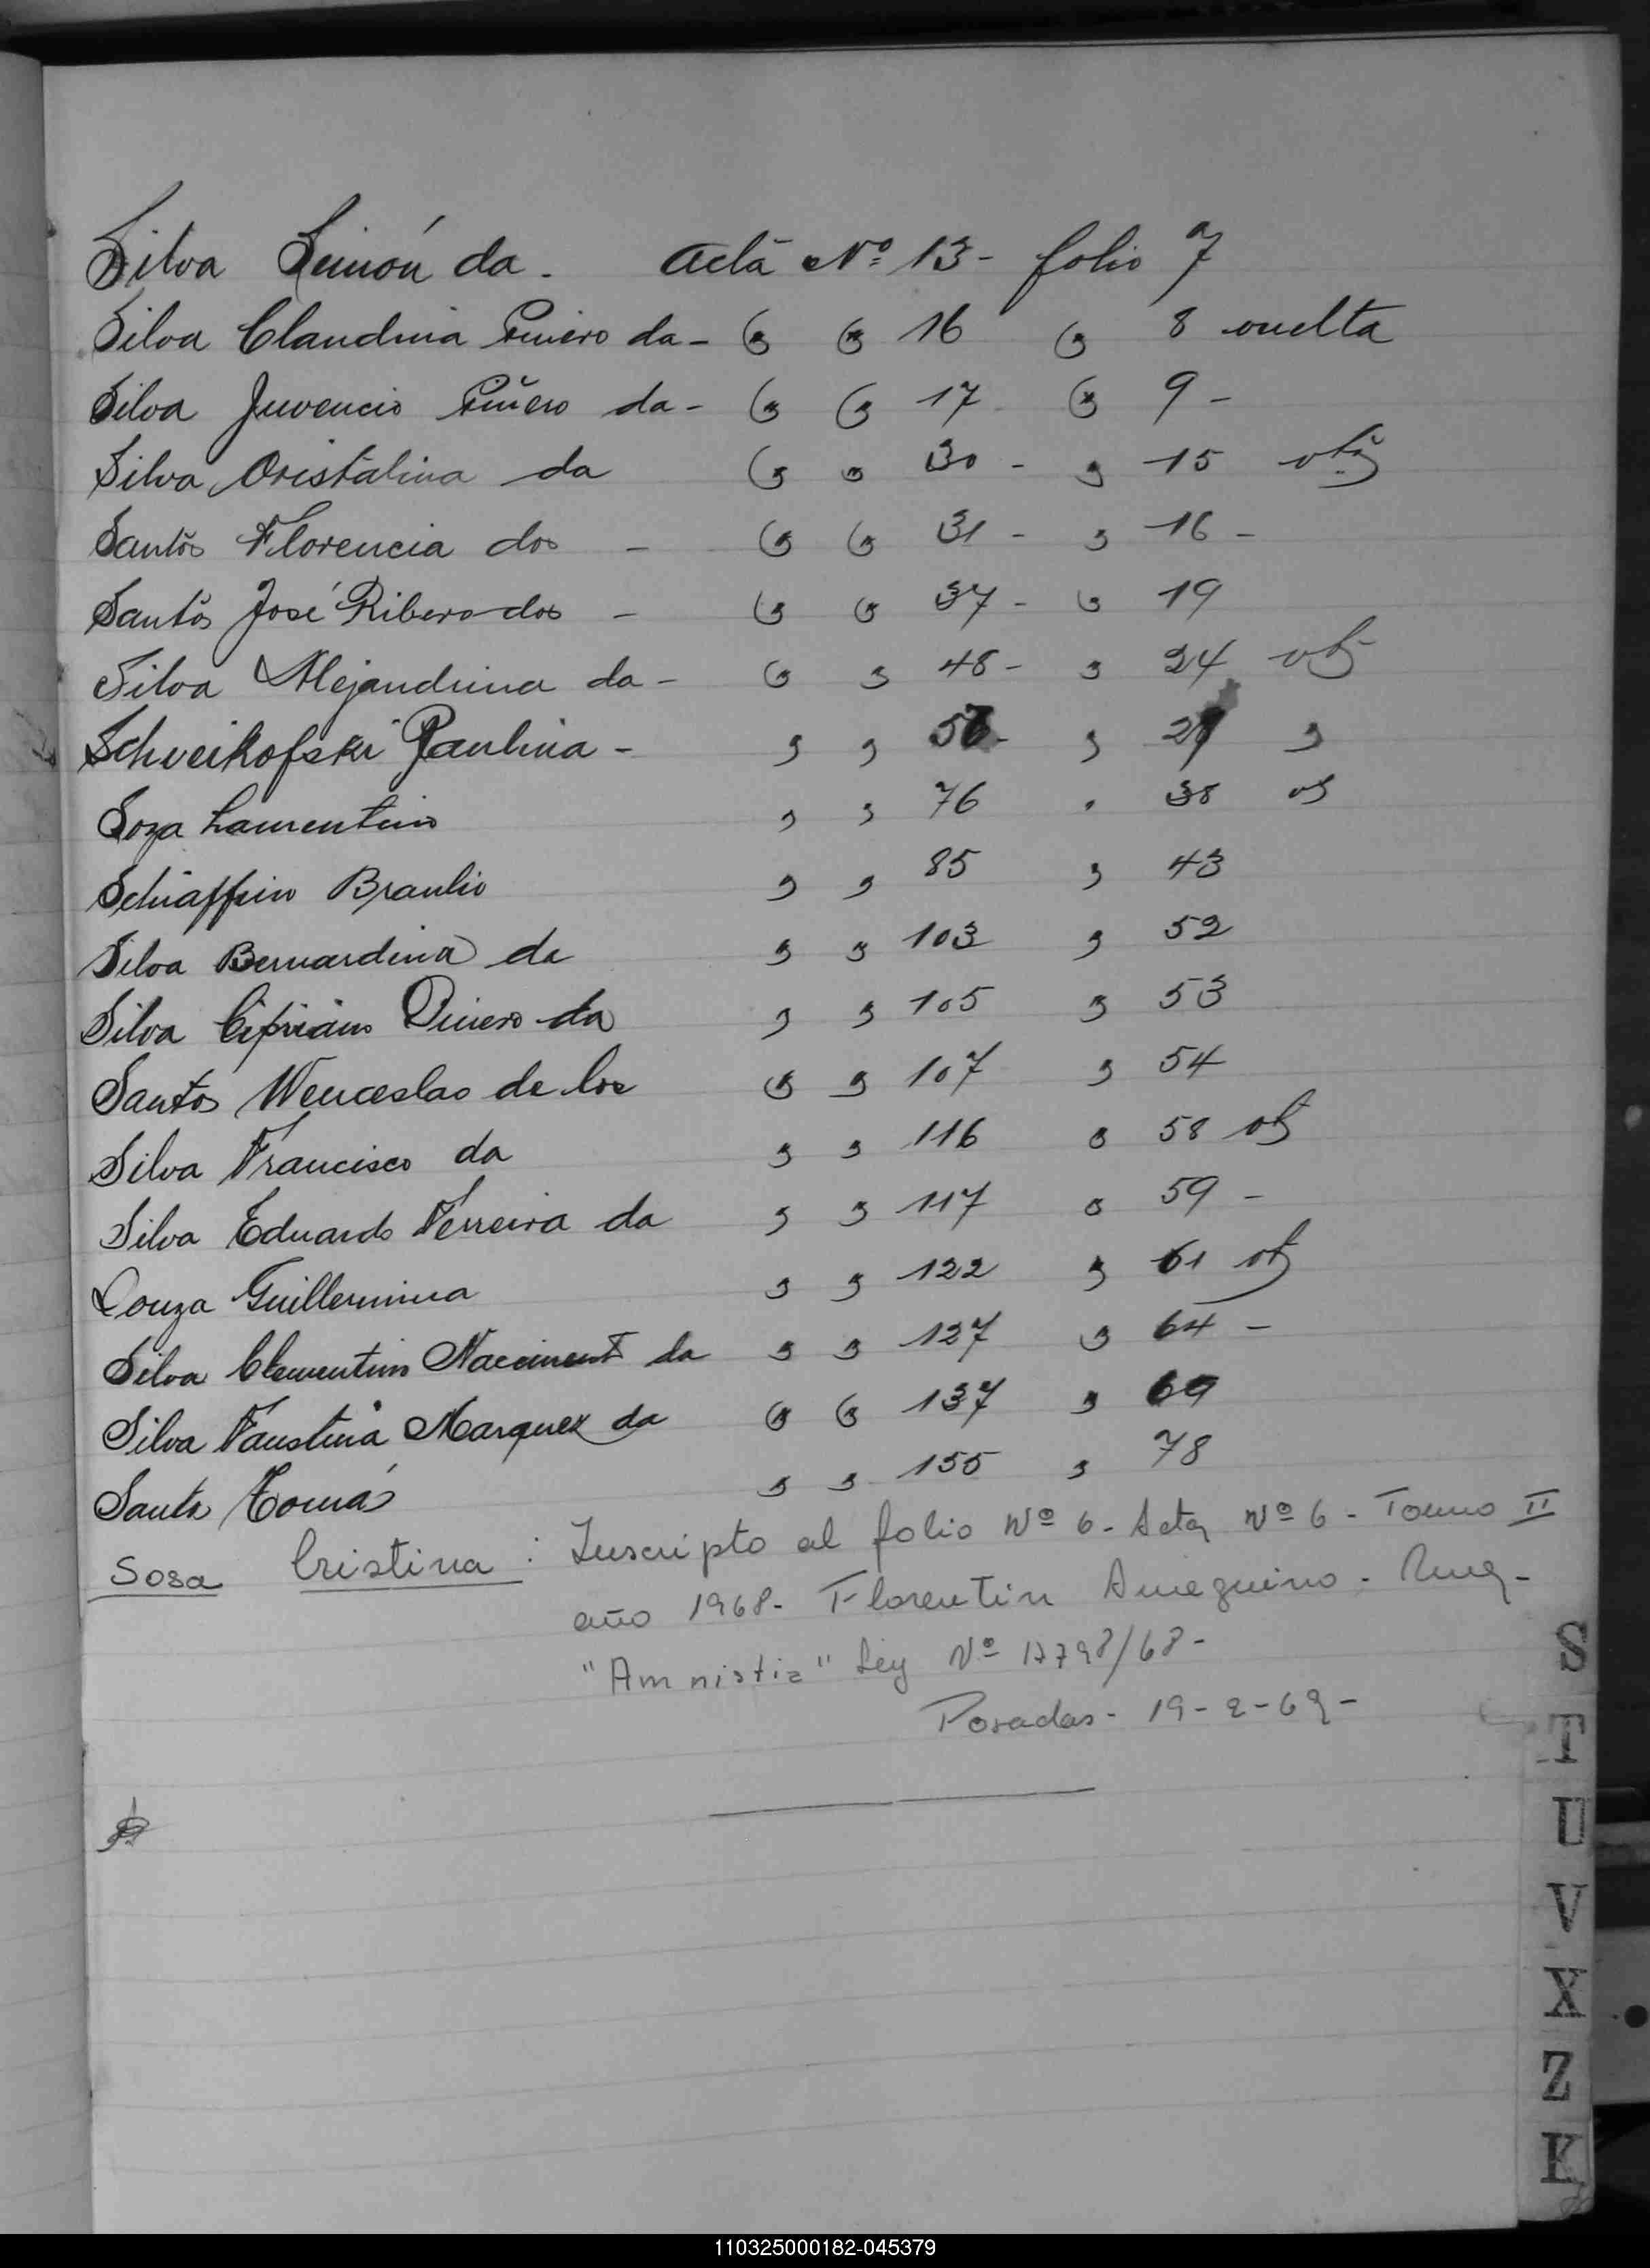 Silva Simón da - Acta Nº 13 - folio 7
Silva Claudina Piniero da - " " 16 " 8 vuelta
Silva Juvencio Piñero da - " " 17 " 9 -
Silva Cristalina da " " 30 - " 15 vtª
Santos Florencia dos - " " 31 - " 16 -
Santos José Ribero dos - " " 37 - " 19
Silva Alejandrina da - " " 48 - " 24 vtª
Schveikofski Paulina - " " " "
Soza Laurentino " " 76 " 38 "
Schiaffino Braulio " " 85 " 43
Silva Bernardina da " " 103 " 52
Silva Cipriano Piniero da " " 105 " 53
Santos Wenceslao de los " " 107 " 54
Silva Francisco da " " 116 " 58 vtª
Silva Eduardo Ferreira da " " 117 " 59 -
Souza Guillermina " " 122 " 61 vtª
Silva Clementino Naciment da " " 127 " 64 -
Silva Faustina Marquez da " " 137 " 69
Santos Tomás " " 155 " 78
Sosa Cristina : Inscripto al folio Nº 6 - Acta Nº 6 - Tomo II
año 1968 - Florentin Ameguino -
"Amnistia" Ley Nº 17798/68 -
Posadas - 19-2-69 -
S
T
U
V
X
Z
K
110325000182-045379